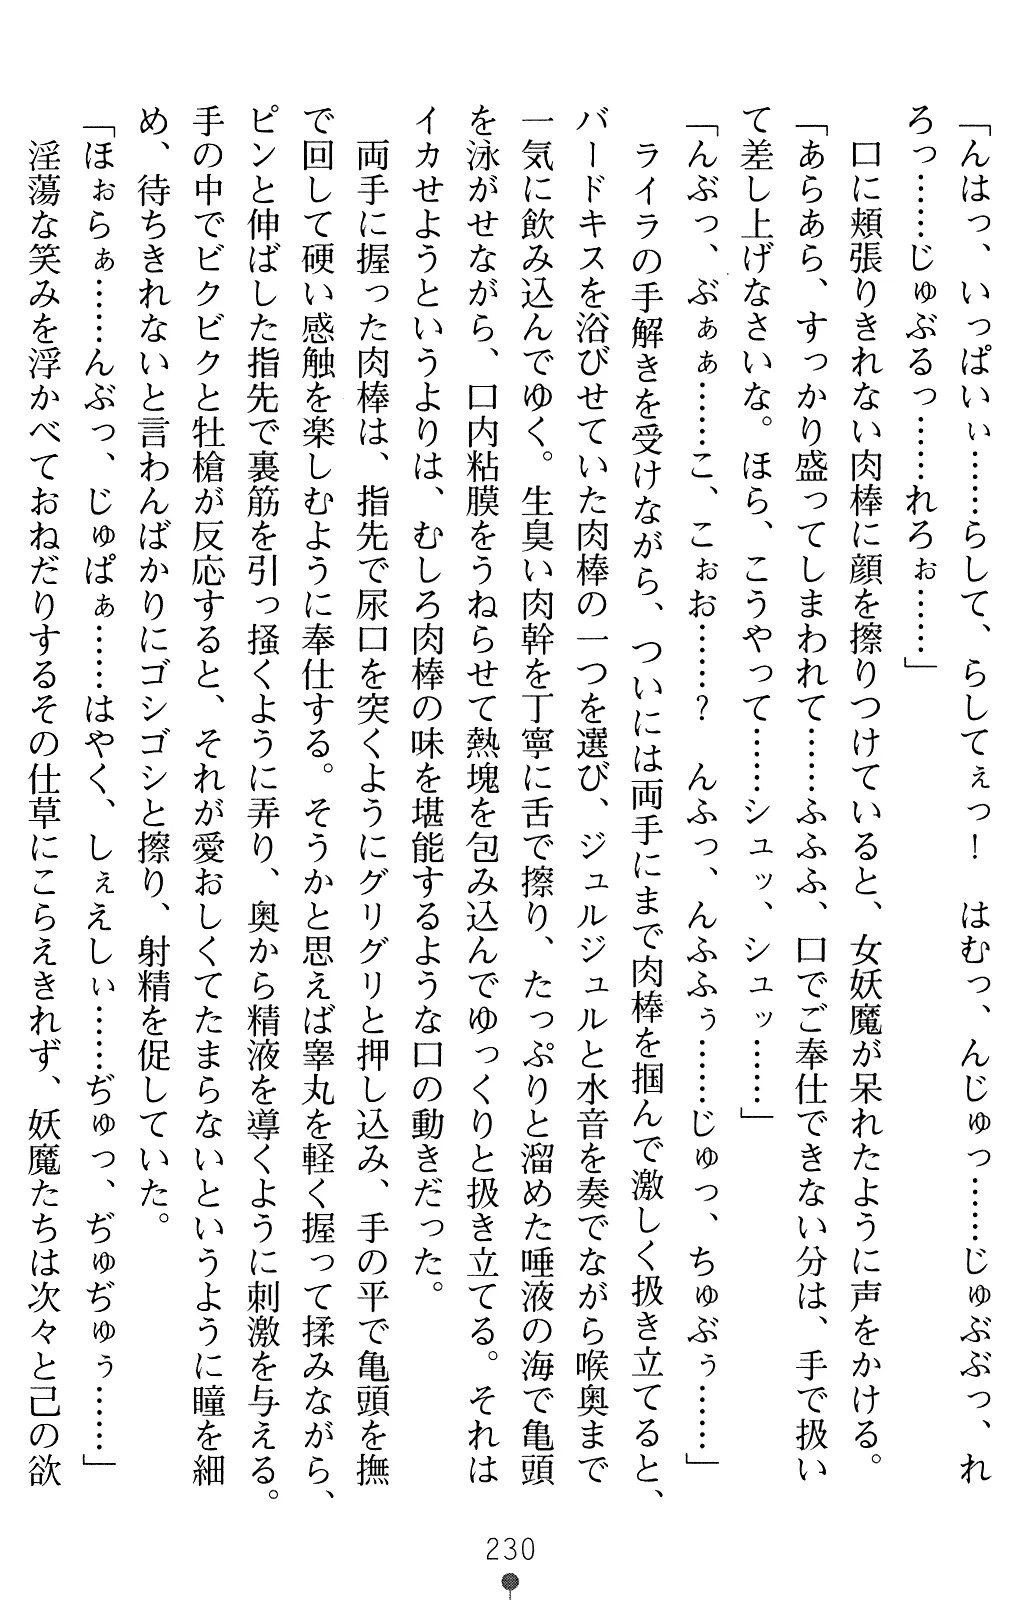 「んはっ、いっぱいぃ……らして、らしてぇっ！　はむっ、んじゅっ……じゅぶぶっ、れ
ろっ……じゅぶるっ……れろぉ……」
　口に頬張りきれない肉棒に顔を擦りつけていると、女妖魔が呆れたように声をかける。
「あらあら、すっかり盛ってしまわれて……ふふふ、口でご奉仕できない分は、手で扱い
て差し上げなさいな。ほら、こうやって……シュッ、シュッ……」
「んぶっ、ぶぁぁ……こ、こぉお……？　んふっ、んふふぅ……じゅっ、ちゅぶぅ……」
　ライラの手解きを受けながら、ついには両手にまで肉棒を掴んで激しく扱き立てると、
バードキスを浴びせていた肉棒の一つを選び、ジュルジュルと水音を奏でながら喉奥まで
一気に飲み込んでゆく。生臭い肉幹を丁寧に舌で擦り、たっぷりと溜めた唾液の海で亀頭
を泳がせながら、口内粘膜をうねらせて熱塊を包み込んでゆっくりと扱き立てる。それは
イカせようというよりは、むしろ肉棒の味を堪能するような口の動きだった。
　両手に握った肉棒は、指先で尿口を突くようにグリグリと押し込み、手の平で亀頭を撫
で回して硬い感触を楽しむように奉仕する。そうかと思えば睾丸を軽く握って揉みながら、
ピンと伸ばした指先で裏筋を引っ掻くように弄り、奥から精液を導くように刺激を与える。
手の中でビクビクと牡槍が反応すると、それが愛おしくてたまらないというように瞳を細
め、待ちきれないと言わんばかりにゴシゴシと擦り、射精を促していた。
「ほぉらぁ……んぶっ、じゅぱぁ……はやく、しぇえしぃ……ぢゅっ、ぢゅぢゅぅ……」
　淫蕩な笑みを浮かべておねだりするその仕草にこらえきれず、妖魔たちは次々と己の欲
230